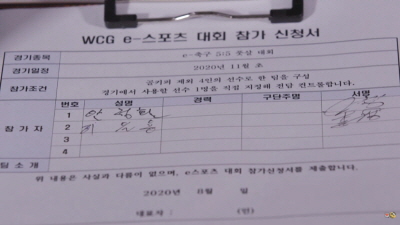 WCG e-스포츠 대회 참가 신청서
경기종목 e-축구 5:5 풋살 대회
경기일정 2020년 11월 초
참가조건 골키퍼 제외 4인의 선수로 한 팀을 구성
경기에서 사용할 선수 1명을 직접 지정해 전담 컨트롤합니다.
참가자 번호 성명 경력 구단주명 서명
1 안정환
2
3
4
팀 소개
위 내용은 사실과 다름이 없으며, e스포츠 대회 참가신청서를 제출합니다.
2020년 8월 일
대표자 : (인)